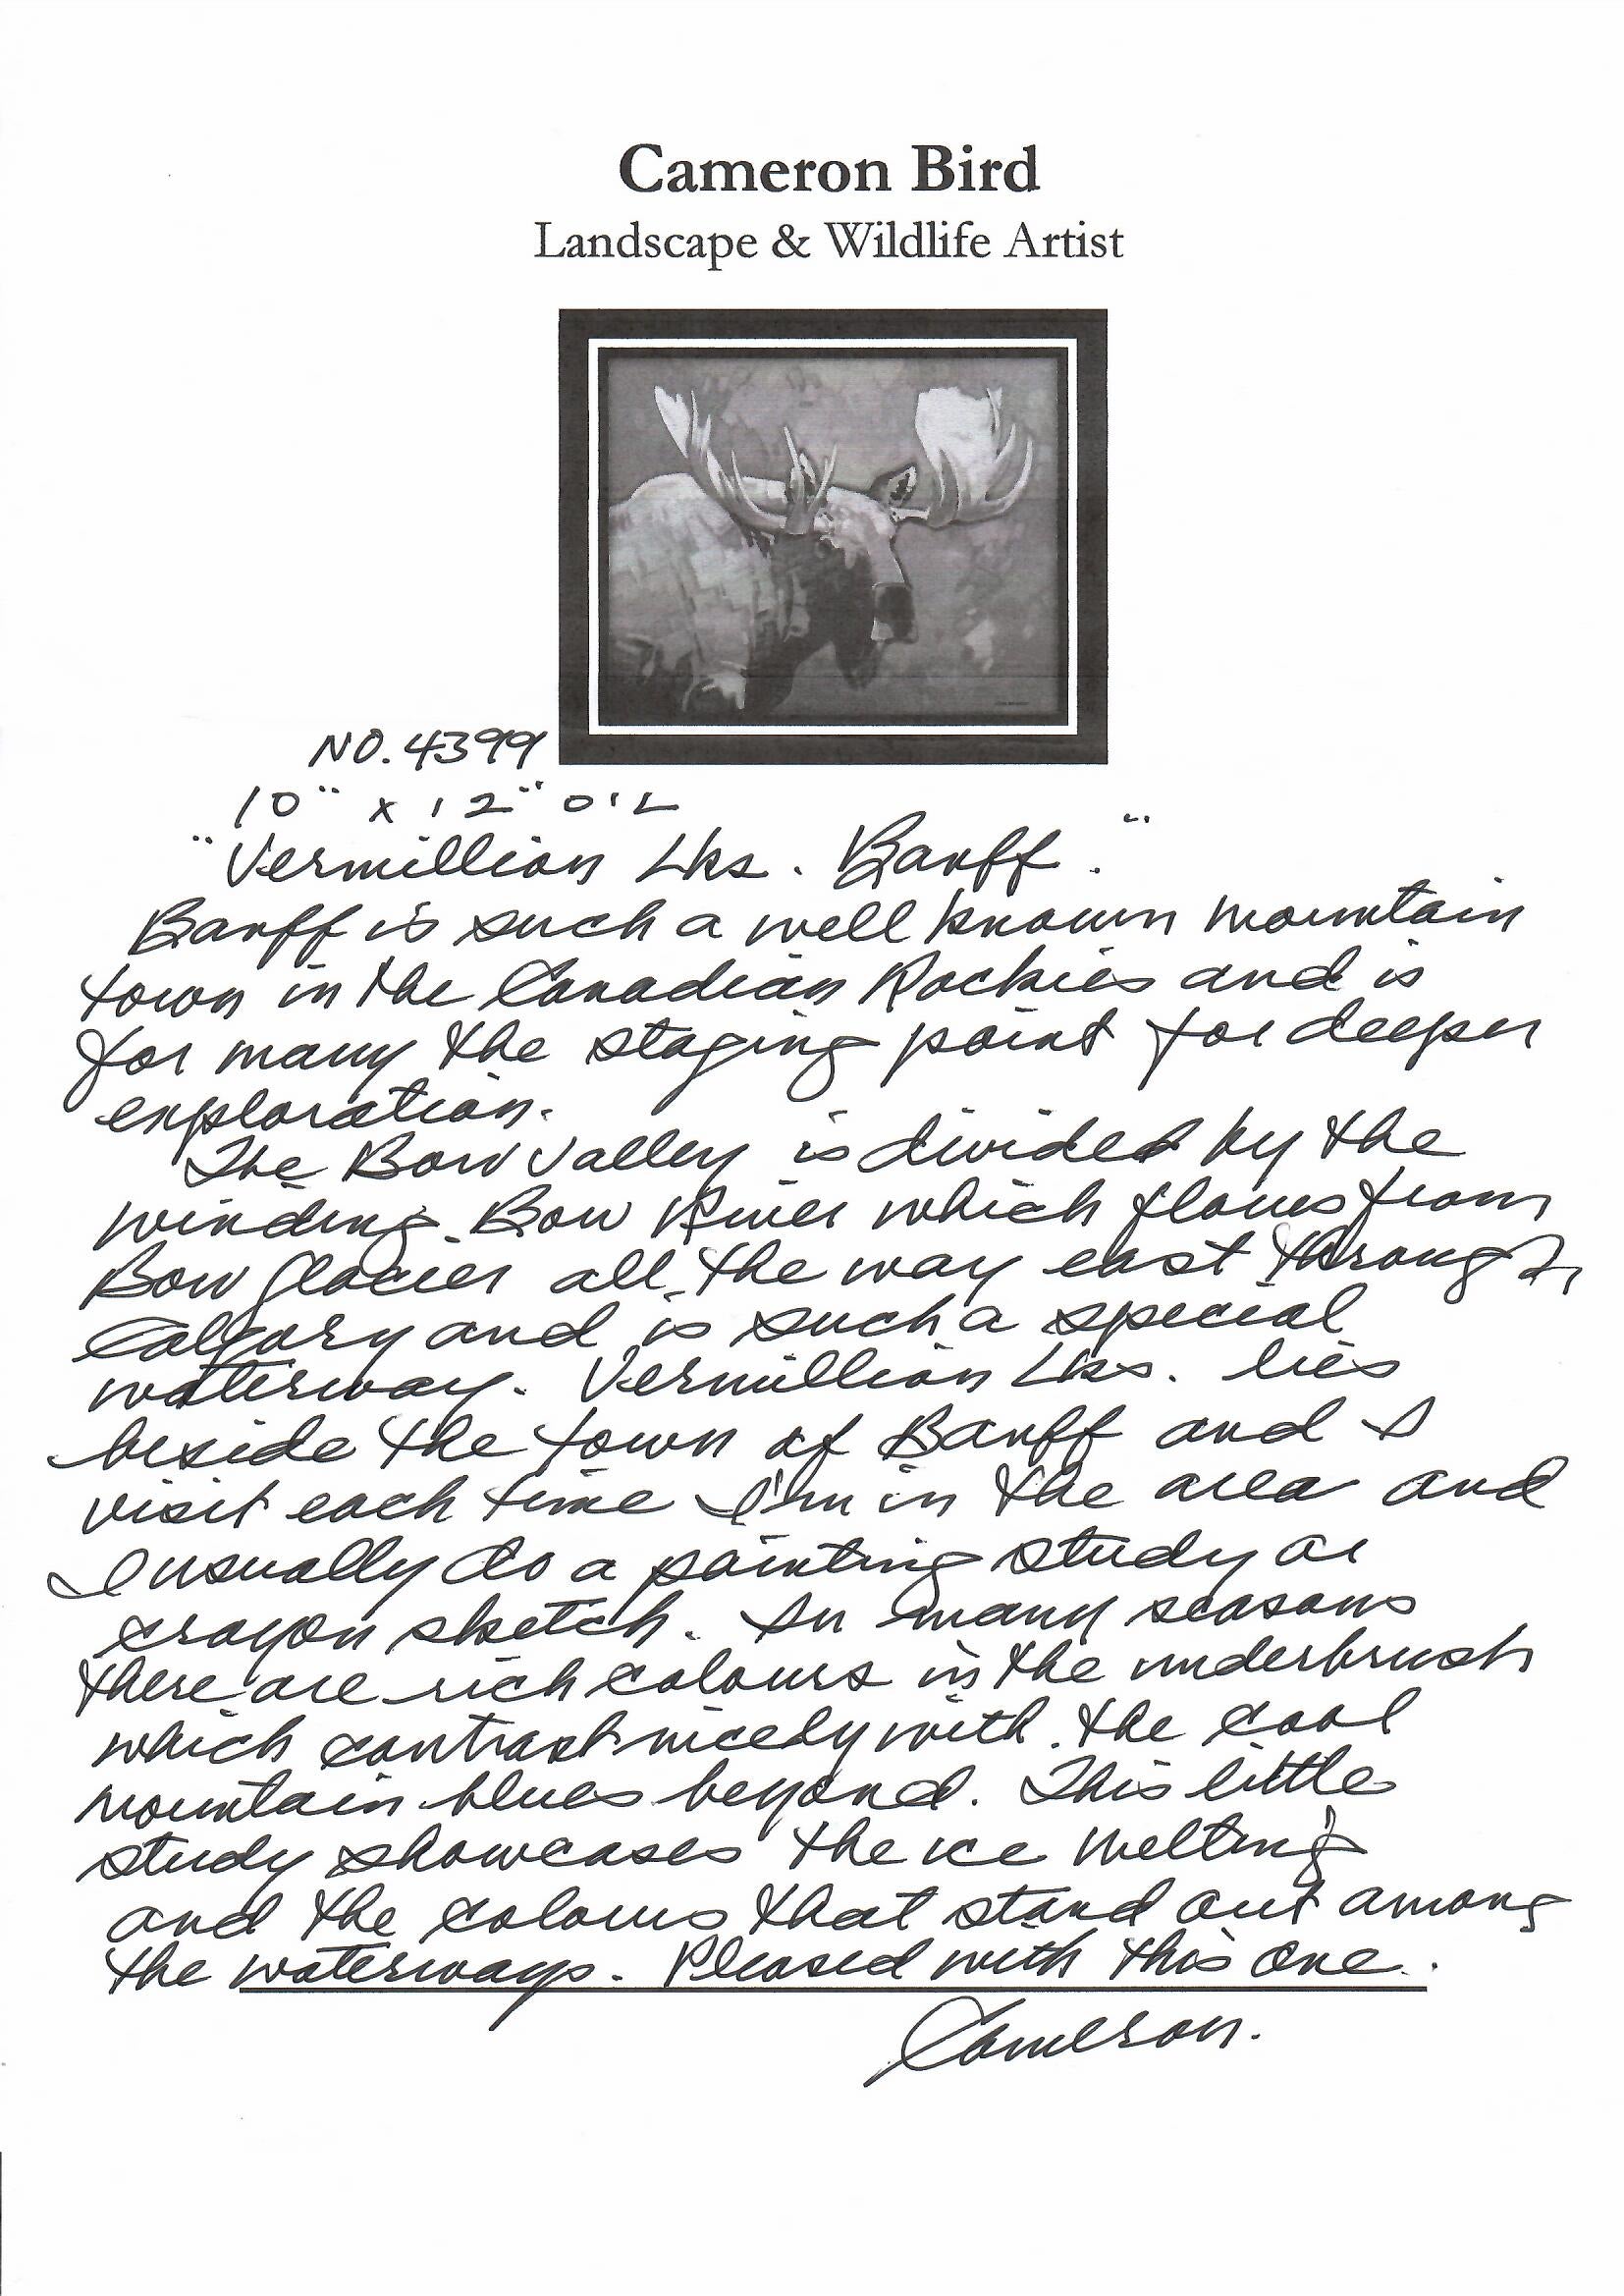 Cameron Bird
Landscape & Wildlife Artist
NO. 4399
10" x 12" OIL
"Vermillion Lks. Banff."
Banff is such a well known mountain
town in the Canadian Rockies and is
for many the staging point for deeper
exploration.
The Bow Valley is divided by the
winding Bow River which flows from
Bow glacier all the way east through
Calgary and is such a special
waterway. Vermillion Lks. lies
beside the town of Banff and I
visit each time I'm in the area and
I usually do a painting study or
crayon sketch. In many seasons
there are rich colours in the underbrush
which contrast nicely with the cool
mountain blues beyond. This little
study showcases the ice melting
and the colours that stand out among
the waterways. Pleased with this one.
Cameron.